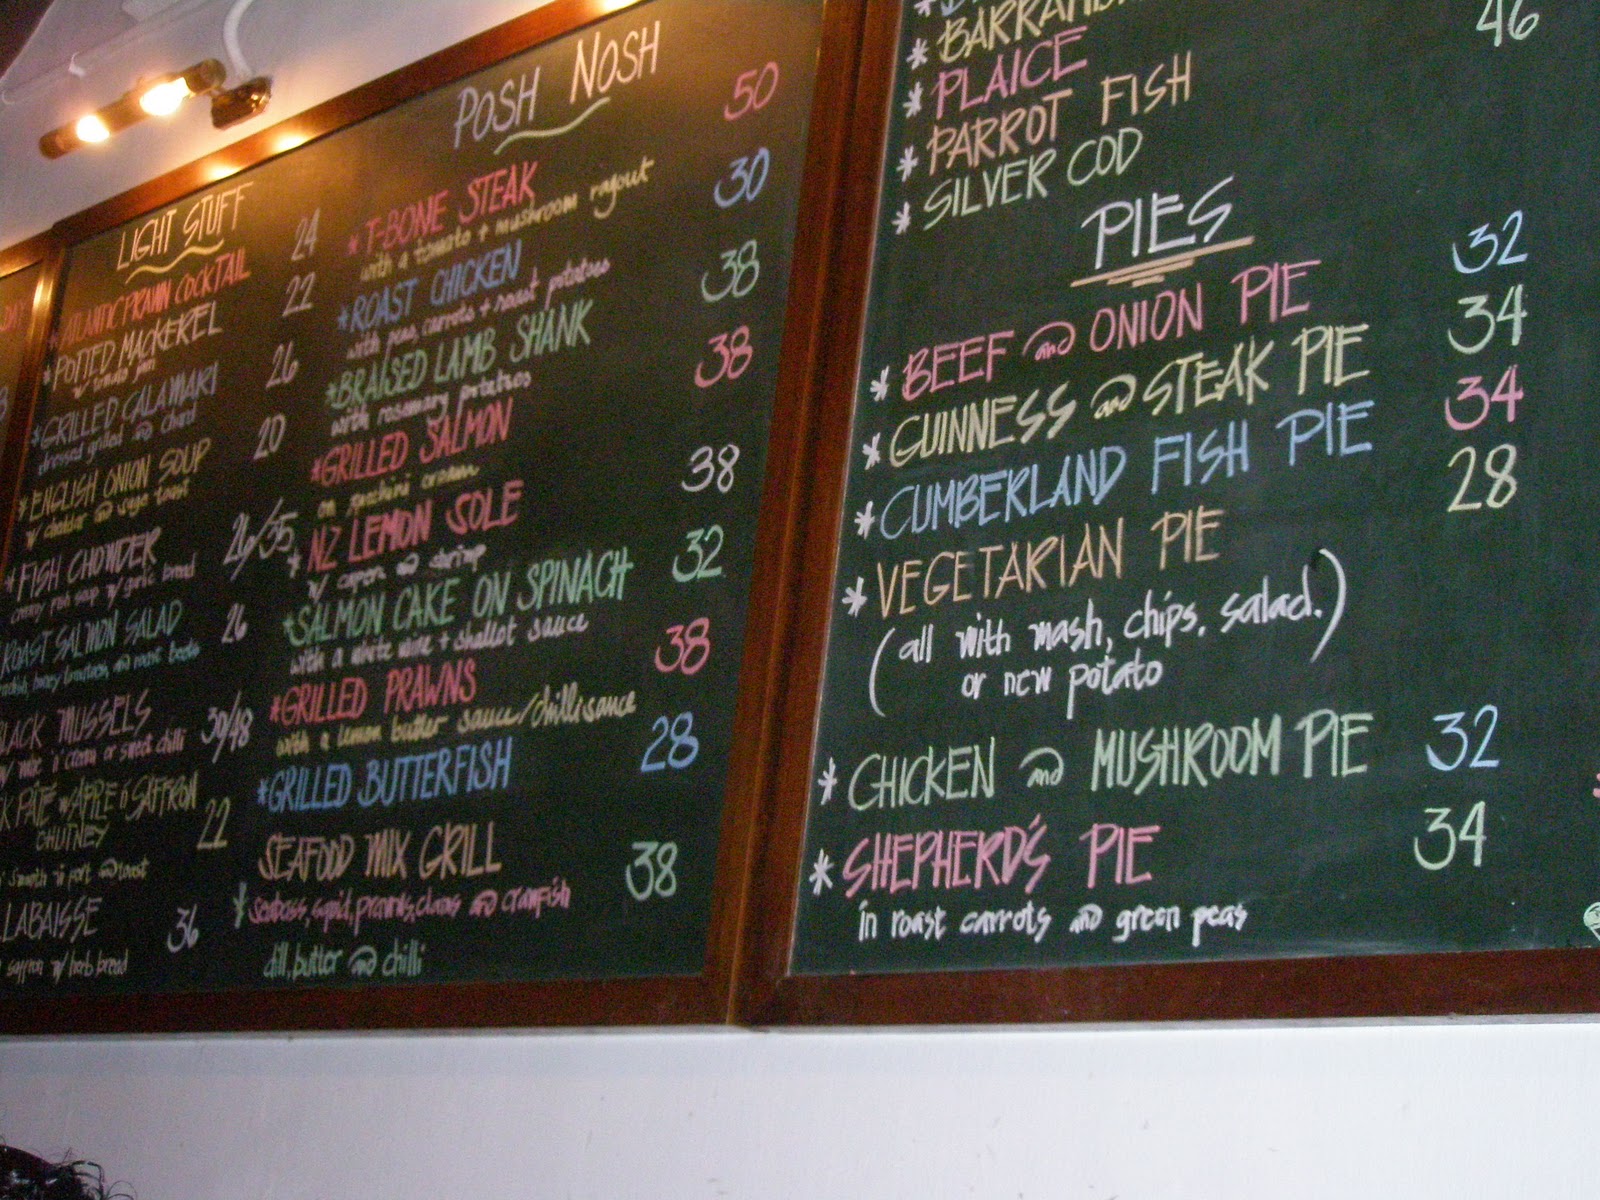 LIGHT STUFF
* ATLANTIC PRAWN COCKTAIL 24
* POTTED MACKEREL 22
* GRILLED CALAMARI 26
dressed grilled and
* ENGLISH ONION SOUP 20
w/ cheddar and toast
* FISH CHOWDER 26/35
creamy fish soup w/ garlic bread
ROAST SALMON SALAD 26
BLACK MUSSELS 39/48
w/ wine n' cream or sweet chilli
PATÉ w/ APPLE n' SAFFRON
CHUTNEY 22
smooth n port and toast
LABAISSE 36
saffron w/ herb bread
POSH NOSH
* T-BONE STEAK 50
with a tomato + mushroom ragout
* ROAST CHICKEN 30
with peas, carrots + roast potatoes
* BRAISED LAMB SHANK 38
with rosemary potatoes
* GRILLED SALMON 38
on cream
* NZ LEMON SOLE 38
w/ caper and shrimp
* SALMON CAKE ON SPINACH 32
with a white wine + shallot sauce
* GRILLED PRAWNS 38
with a lemon butter sauce/chilli sauce
* GRILLED BUTTERFISH 28
SEAFOOD MIX GRILL 38
* seabass, squid, prawns, clams and crawfish
dill, butter and chilli
46
* PLAICE
* PARROT FISH
* SILVER COD
PIES
* BEEF and ONION PIE 32
* GUINNESS and STEAK PIE 34
* CUMBERLAND FISH PIE 34
* VEGETARIAN PIE 28
(all with mash, chips, salad.)
or new potato
* CHICKEN and MUSHROOM PIE 32
* SHEPHERD'S PIE 34
in roast carrots and green peas